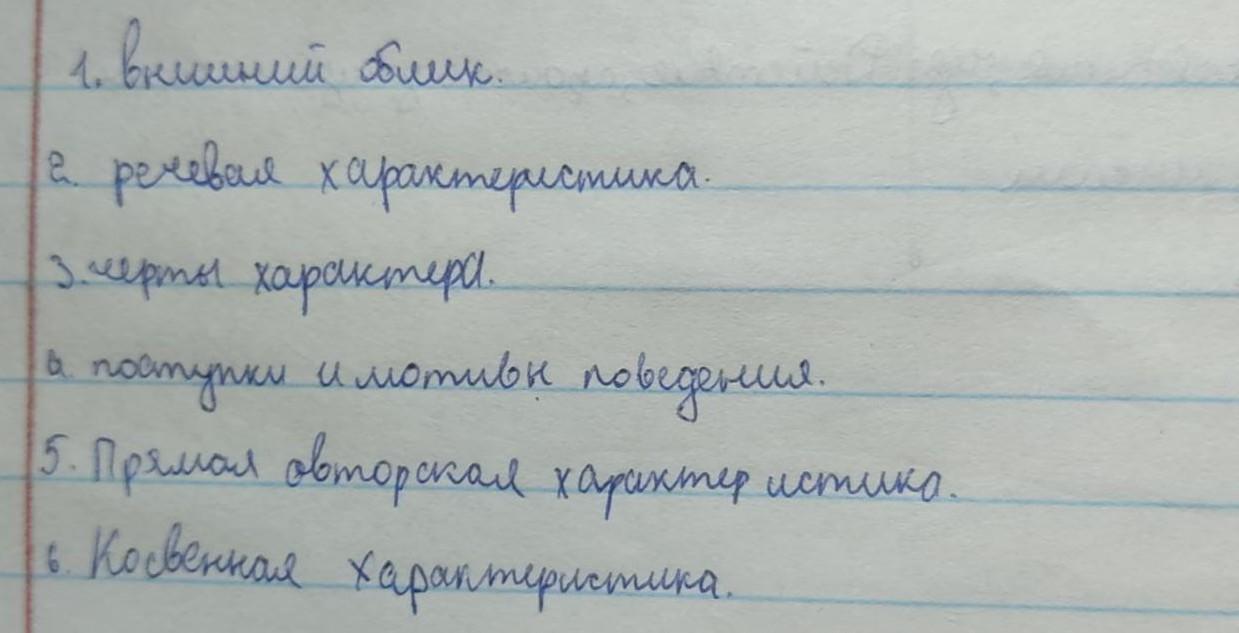 1. внешний облик.
2. речевая характеристика.
3. черты характера.
4. поступки и мотивы поведения.
5. Прямая авторская характеристика.
6. Косвенная характеристика.